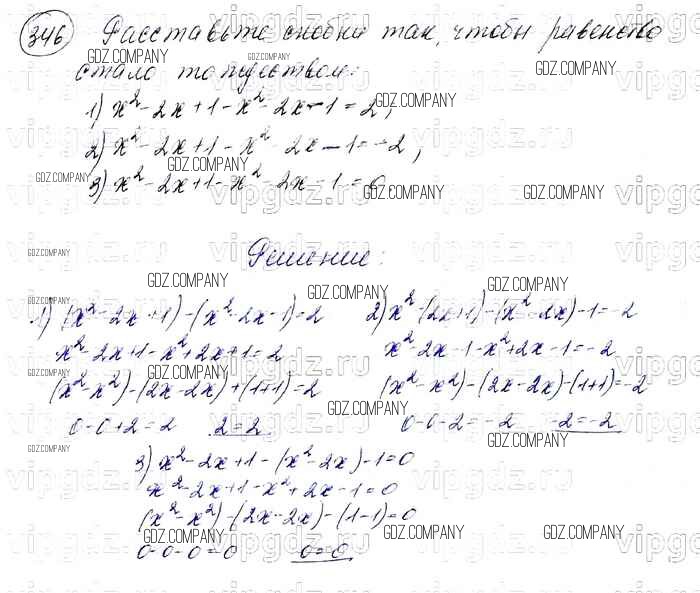 346 Расставьте скобки так, чтобы равенство
стало тождеством:
1) x² - 2x + 1 - x² - 2x - 1 = 2;
2) x² - 2x + 1 - x² - 2x - 1 = -2;
3) x² - 2x + 1 - x² - 2x - 1 = 0.
Решение:
1) (x² - 2x + 1) - (x² - 2x - 1) = 2
x² - 2x + 1 - x² + 2x + 1 = 2
(x² - x²) - (2x - 2x) + (1 + 1) = 2
0 - 0 + 2 = 2 2 = 2
2) x² - (2x + 1) - (x² - 2x) - 1 = -2
x² - 2x - 1 - x² + 2x - 1 = -2
(x² - x²) - (2x - 2x) - (1 + 1) = -2
0 - 0 - 2 = -2 -2 = -2
3) x² - 2x + 1 - (x² - 2x) - 1 = 0
x² - 2x + 1 - x² + 2x - 1 = 0
(x² - x²) - (2x - 2x) - (1 - 1) = 0
0 - 0 - 0 = 0 0 = 0
GDZ.COMPANY
vipgdz.ru